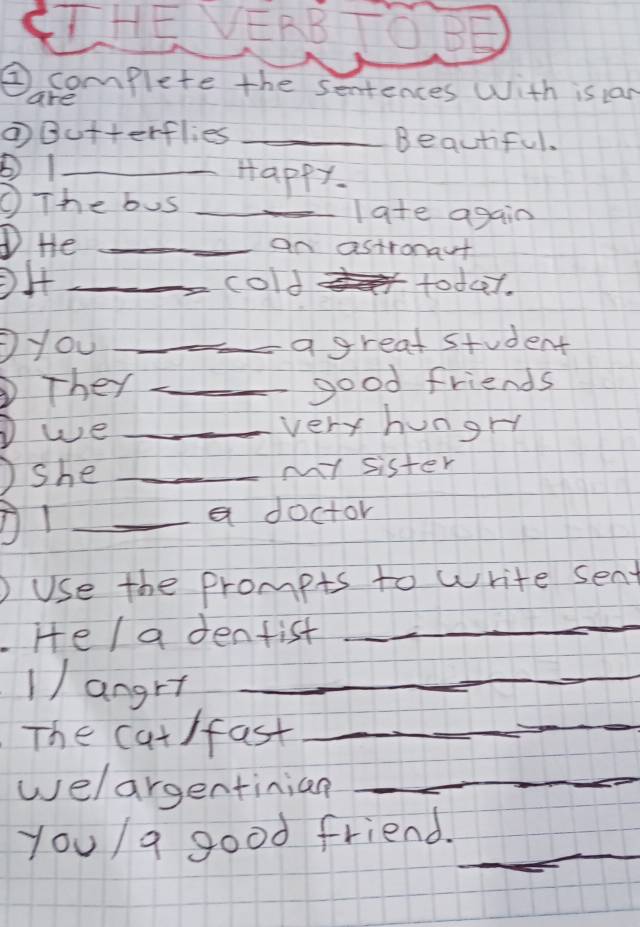 THE VERB TO BE
① complete the sentences With is, am
are
a) Butterflies ______ Beautiful.
b) I ______ Happy.
c) The bus ______ late again
d) He ______ an astronaut
e) It ______ cold today.
You ______ a great student
They ______ good friends
we ______ very hungry
she ______ my sister
I ______ a doctor
Use the Prompts to write sent
. He / a dentist ______
I / angry ______
The cat / fast ______
we / argentinian ______
you / a good friend. ______